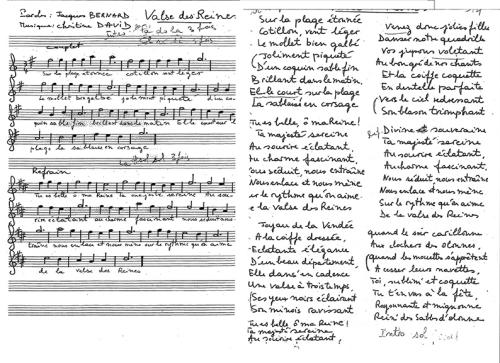 Paroles : Jacques BERNARD
Valse des Reines
Musique : christine DAVID
couplet
Sur la plage étonnée cotillon vent léger
Le mollet bien galbé joliment piquité d'un co
quin sablé fin brillant dans le matin Et le court sur la
plage la sablaise en corsage
Refrain
Tu es belle ô ma Reine ta majesté sereine Au sou
rire éclatant au charme fascinant nous séduit nous en
traîne nous enlace et nous mène sur le rythme qu'on aime
de la valse des Reines
Sur la plage étonnée
Cotillon, vent léger
Le mollet bien galbé
Joliment piquité
D'un coquin sable fin
Brillant dans le matin,
Et le court sur la plage
La sablaise en corsage
Tu es belle, ô ma Reine!
Ta majesté sereine
Au sourire éclatant,
Au charme fascinant,
Nous séduit, nous entraîne
Nous enlace et nous mène
Sur le rythme qu'on aime
De la valse des Reines
Joyau de la Vendée
A la coiffe dressée,
Eclatante élégance
D'un beau département,
Elle danse en cadence
Une valse à trois temps,
Ses yeux noirs éclairant
Son minois ravissant
Tu es belle ô ma Reine!
Ta majesté sereine
Au sourire éclatant,
Venez donc jolies filles
Danser notre quadrille
Vos jupons voletant
Au bon gré de nos chants
Et la coiffe coquette
En dentelle parfaite
Vers le ciel redressant
Son blason triomphant
Ref Divine souveraine
Ta majesté sereine
Au sourire éclatant,
Au charme fascinant,
Nous séduit nous entraîne
Nous enlace et nous mène
Sur le rythme qu'on aime
De la valse des Reines
Quand le soir carillonne
Aux clochers des olonnes,
Quand les mouettes s'apprêtent
A cesser leurs navettes,
Toi, sublime et coquette
Tu t'en vas à la fête,
Rayonnante et mignonne
Reine des Sables d'olonne
Intro sol